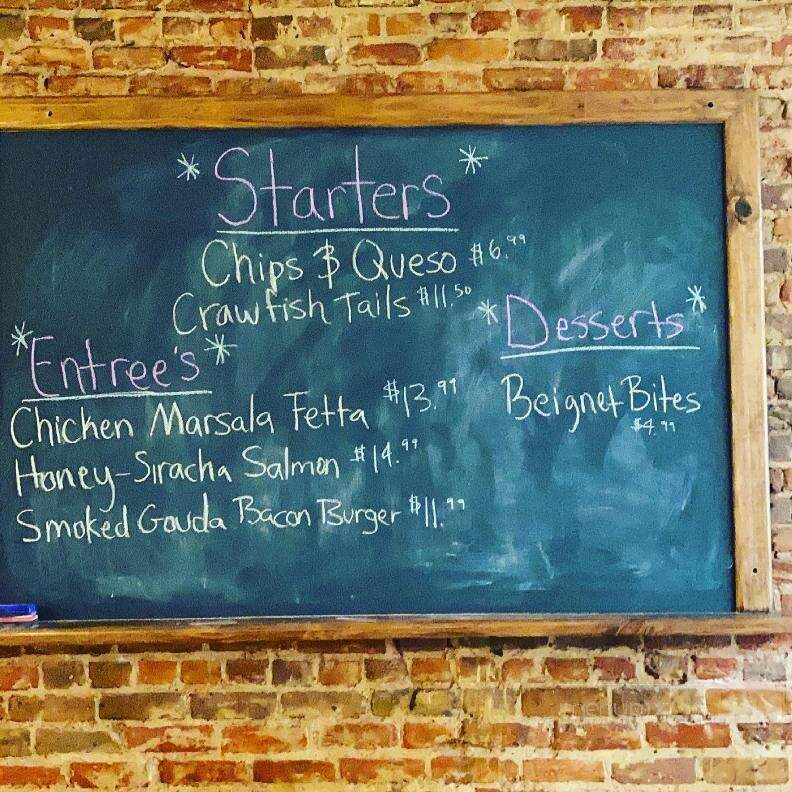 *Starters*
Chips & Queso $6.99
Crawfish Tails $11.50
*Entree's*
Chicken Marsala Fetta $13.99
Honey-Siracha Salmon $14.99
Smoked Gouda Bacon Burger $11.99
*Desserts*
Beignet Bites
$4.99